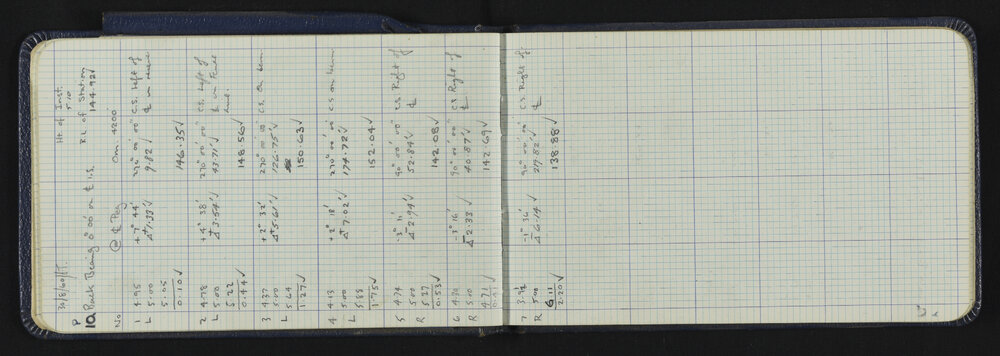 Ht of Inst.
5.10
P
10 Back Bearing 0° 00' on ℄ I.S. RL of Station
144.92 ✓
No @ ℄ Peg 4200'
1 4.95 +7° 44' 270° 00' 00" C.S. Left of
L 5.00 Δ+ 1.33 ✓ 9.82 ✓ ℄ on
5.05
0.10 ✓ 146.35 ✓
2 4.78 +4° 38' 270° 00' 00" C.S. Left of
L 5.00 Δ+ 3.54 ✓ 43.71 ✓ ℄ on
5.22
0.44 ✓ 148.56 ✓
3 4.37 +2° 32' 270° 00' 00" C.S. on berm
5.00 Δ+ 5.61 ✓ 126.75 ✓
L 5.64
1.27 ✓ 150.63 ✓
4 4.13 +2° 18' 270° 00' 00" C.S on berm
5.00 Δ+ 7.02 ✓ 174.72 ✓
L 5.88
1.75 ✓ 152.04 ✓
5 4.74 -3° 11' 90° 00' 00" C.S Right of
R 5.00 Δ- 2.94 ✓ 52.84 ✓ ℄
5.27
0.53 ✓ 142.08 ✓
6 -3° 16' 90° 00' 00" C.S Right of
R 5.00 Δ- 2.33 ✓ 40.87 ✓ ℄
4.71
142.69 ✓
7 -1° 36' 90° 00' 00" C.S. Right of
R 5.00 Δ- 6.14 ✓ 219.82 ✓ ℄
6.11
2.20 ✓ 138.88 ✓